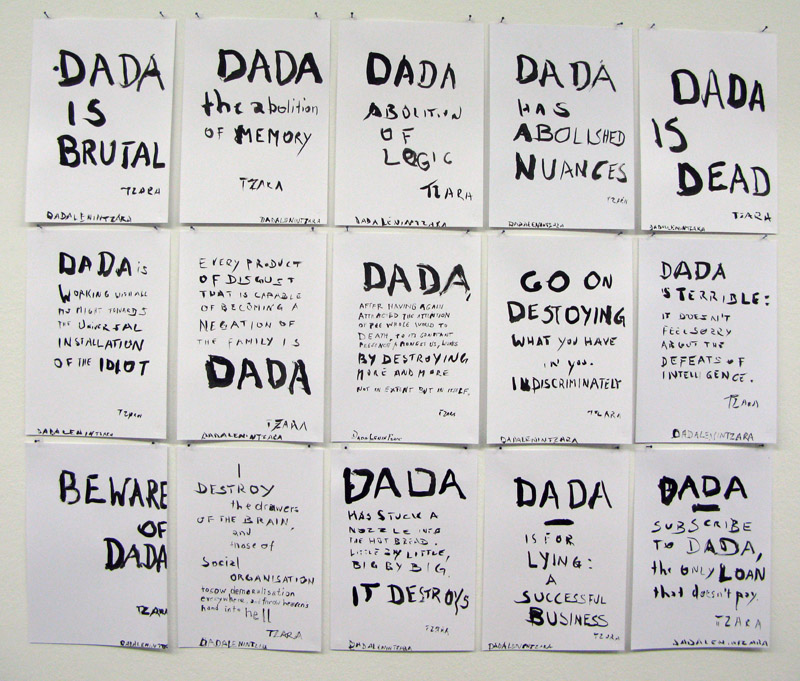 DADA
IS
BRUTAL
TZARA
DADALENINTZARA
DADA
the abolition
OF MEMORY
TZARA
DADALENINTZARA
DADA
ABOLITION
OF
LOGIC
TZARA
DADALENINTZARA
DADA
HAS
ABOLISHED
NUANCES
TZARA
DADALENINTZARA
DADA
IS
DEAD
TZARA
DADALENINTZARA
DADA is
WORKING WITH ALL
HIS MIGHT TOWARDS
THE UNIVERSAL
INSTALLATION
OF THE IDIOT
TZARA
DADALENINTZARA
EVERY PRODUCT
OF DISGUST
THAT IS CAPABLE
OF BECOMING A
NEGATION OF
THE FAMILY IS
DADA
TZARA
DADALENINTZARA
DADA,
AFTER HAVING AGAIN
ATTRACTED THE ATTENTION
OF THE WHOLE WORLD TO
DEATH, TO ITS CONSTANT
PRESENCE AMONGST US, LIVES
BY DESTROYING
MORE AND MORE
NOT IN EXTENT BUT IN ITSELF.
TZARA
DADALENINTZARA
GO ON
DESTOYING
WHAT YOU HAVE
IN YOU.
INDISCRIMINATELY
TZARA
DADALENINTZARA
DADA
IS TERRIBLE:
IT DOESN'T
FEEL SORRY
ABOUT THE
DEFEATS OF
INTELLIGENCE.
TZARA
DADALENINTZARA
BEWARE
OF
DADA
TZARA
DADALENINTZARA
I
DESTROY
the drawers
OF THE BRAIN,
and
those of
Social
ORGANISATION
to sow demoralisation
everywhere, and throw heaven's
hand into hell
TZARA
DADALENINTZARA
DADA
HAS STUCK A
NOZZLE INTO
THE HOT BREAD.
LITTLE BY LITTLE,
BIG BY BIG.
IT DESTROYS
TZARA
DADALENINTZARA
DADA
IS FOR
LYING:
A
SUCCESSFUL
BUSINESS
TZARA
DADALENINTZARA
DADA
SUBSCRIBE
TO DADA,
the only LOAN
that doesn't pay.
TZARA
DADALENINTZARA